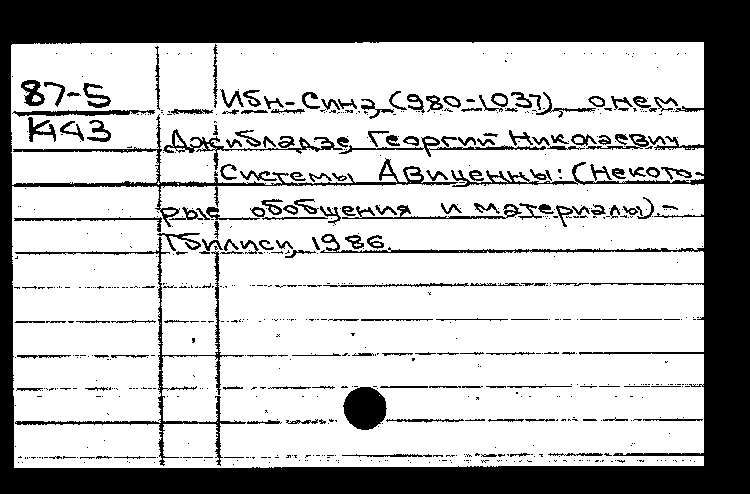 87-5
К443
Ибн-Сина, (980-1037), о нем.
Джибладзе, Георгий Николаевич
Системы Авиценны: (Некото-
рые обобщения и материалы).-
Тбилиси, 1986.